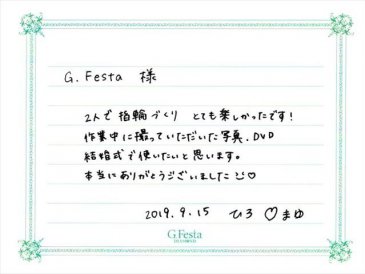 G.Festa 様
2人で指輪づくり とても楽しかったです!
作業中に撮っていただいた写真、DVD
結婚式で使いたいと思います。
本当にありがとうございました ♡
2019.9.15 ひろ ♡ まゆ
G.Festa
DIAMOND